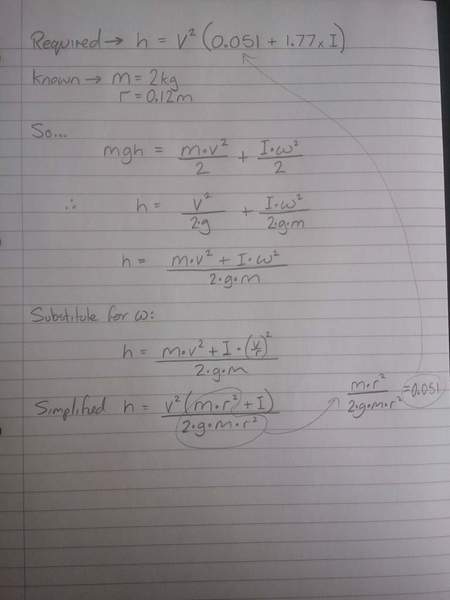 Required → h = V² (0.051 + 1.77 x I)
Known → m = 2kg
r = 0.12m
So...
mgh = m·v²/2 + I·ω²/2
∴ h = V²/2·g + I·ω²/2·g·m
h = m·v² + I·ω²/2·g·m
Substitute for ω:
h = m·v² + I·(V/r)²/2·g·m
Simplified h = V²(m·r² + I)/2·g·m·r²
m·r²/2·g·m·r² = 0.051